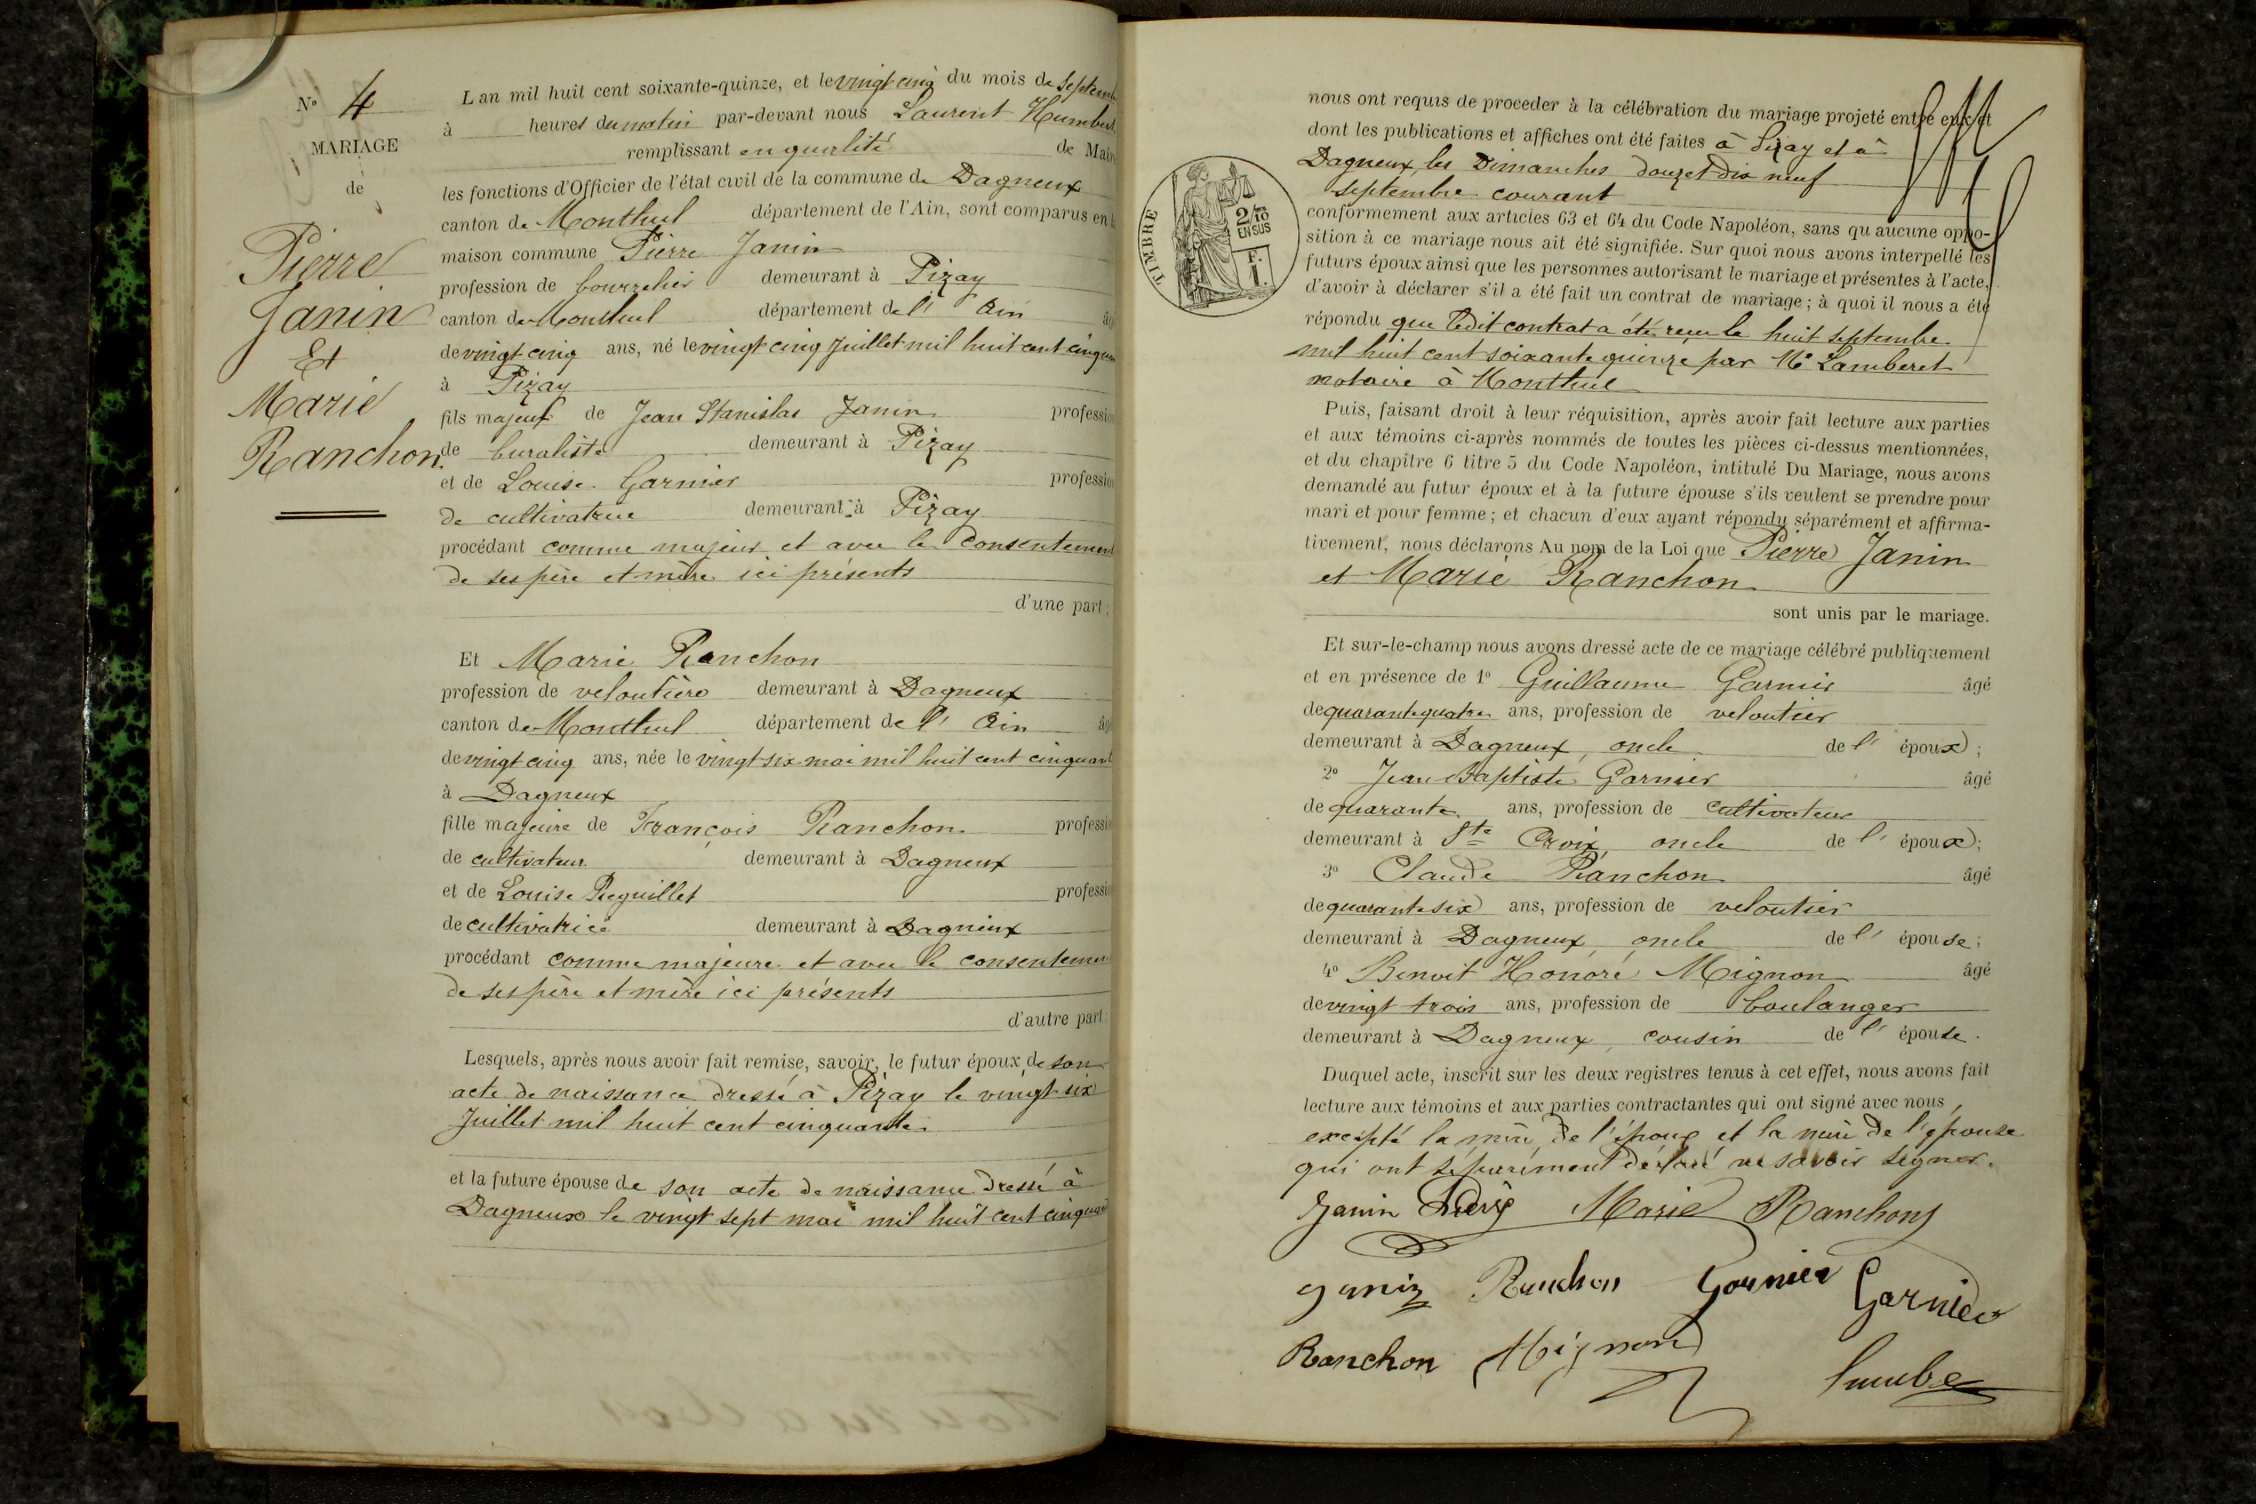 N° 4
MARIAGE
de
Pierre
Janin
Et
Marie
Ranchon
L'an mil huit cent soixante-quinze, et le vingt cinq du mois de septem
à heures du matin par-devant nous Laurent Humbert
remplissant en qualité de Mai
les fonctions d'Officier de l'état civil de la commune de Dagneux
canton de Montluel département de l'Ain, sont comparus en l
maison commune Pierre Janin
profession de bourrelier demeurant à Pizay
canton de Montluel département de l' Ain âg
de vingt cinq ans, né le vingt cinq Juillet mil huit cent cinquan
à Pizay
fils majeur de Jean Stanislas Janin profession
de buraliste demeurant à Pizay
et de Louise Garnier profession
de cultivatrice demeurant à Pizay
procédant comme majeur et avec le consentement
de ses père et mère ici présents
d'une part ;
Et Marie Ranchon
profession de veloutière demeurant à Dagneux
canton de Montluel département de l' Ain âg
de vingt cinq ans, née le vingt six mai mil huit cent cinquant
à Dagneux
fille majeure de François Ranchon professi
de cultivateur demeurant à Dagneux
et de Louise professi
de cultivatrice demeurant à Dagneux
procédant comme majeure et avec le consentemen
de ses père et mère ici présents
d'autre part
Lesquels, après nous avoir fait remise, savoir, le futur époux de son
acte de naissance dressé à Pizay le vingt six
Juillet mil huit cent cinquante
et la future épouse de son acte de naissance dressé à
Dagneux le vingt sept mai mil huit cent cinquant
TIMBRE
2/10
EN SUS
F.
1.
nous ont requis de proceder à la célébration du mariage projeté entre eux et
dont les publications et affiches ont été faites à Pizay et à
Dagneux, les Dimanches douze et dix neuf
septembre courant
conformement aux articles 63 et 64 du Code Napoléon, sans qu'aucune oppo-
sition à ce mariage nous ait été signifiée. Sur quoi nous avons interpellé les
futurs époux ainsi que les personnes autorisant le mariage et présentes à l'acte,
d'avoir à déclarer s'il a été fait un contrat de mariage ; à quoi il nous a été
répondu que ledit contrat a été reçu le huit septembre
mil huit cent soixante quinze par Me Lamberet
notaire à Montluel
Puis, faisant droit à leur réquisition, après avoir fait lecture aux parties
et aux témoins ci-après nommés de toutes les pièces ci-dessus mentionnées,
et du chapitre 6 titre 5 du Code Napoléon, intitulé Du Mariage, nous avons
demandé au futur époux et à la future épouse s'ils veulent se prendre pour
mari et pour femme ; et chacun d'eux ayant répondu séparément et affirma-
tivement, nous déclarons Au nom de la Loi que Pierre Janin
et Marie Ranchon
sont unis par le mariage.
Et sur-le-champ nous avons dressé acte de ce mariage célébré publiquement
et en présence de 1° Guillaume Garnier âgé
de quarante quatre ans, profession de veloutier
demeurant à Dagneux, oncle de l' époux ;
2° Jean Baptiste Garnier âgé
de quarante ans, profession de cultivateur
demeurant à Ste Croix, oncle de l' époux ;
3° Claude Ranchon âgé
de quarante six ans, profession de veloutier
demeurant à Dagneux, oncle de l' épouse ;
4° Benoit Honoré Mignon âgé
de vingt trois ans, profession de boulanger
demeurant à Dagneux, cousin de l' épouse.
Duquel acte, inscrit sur les deux registres tenus à cet effet, nous avons fait
lecture aux témoins et aux parties contractantes qui ont signé avec nous,
excepté la mère de l'époux et la mère de l'épouse
qui ont séparément déclaré ne savoir signer.
Janin Marie Ranchon
Janin Ranchon Garnier Garnier
Ranchon Mignon